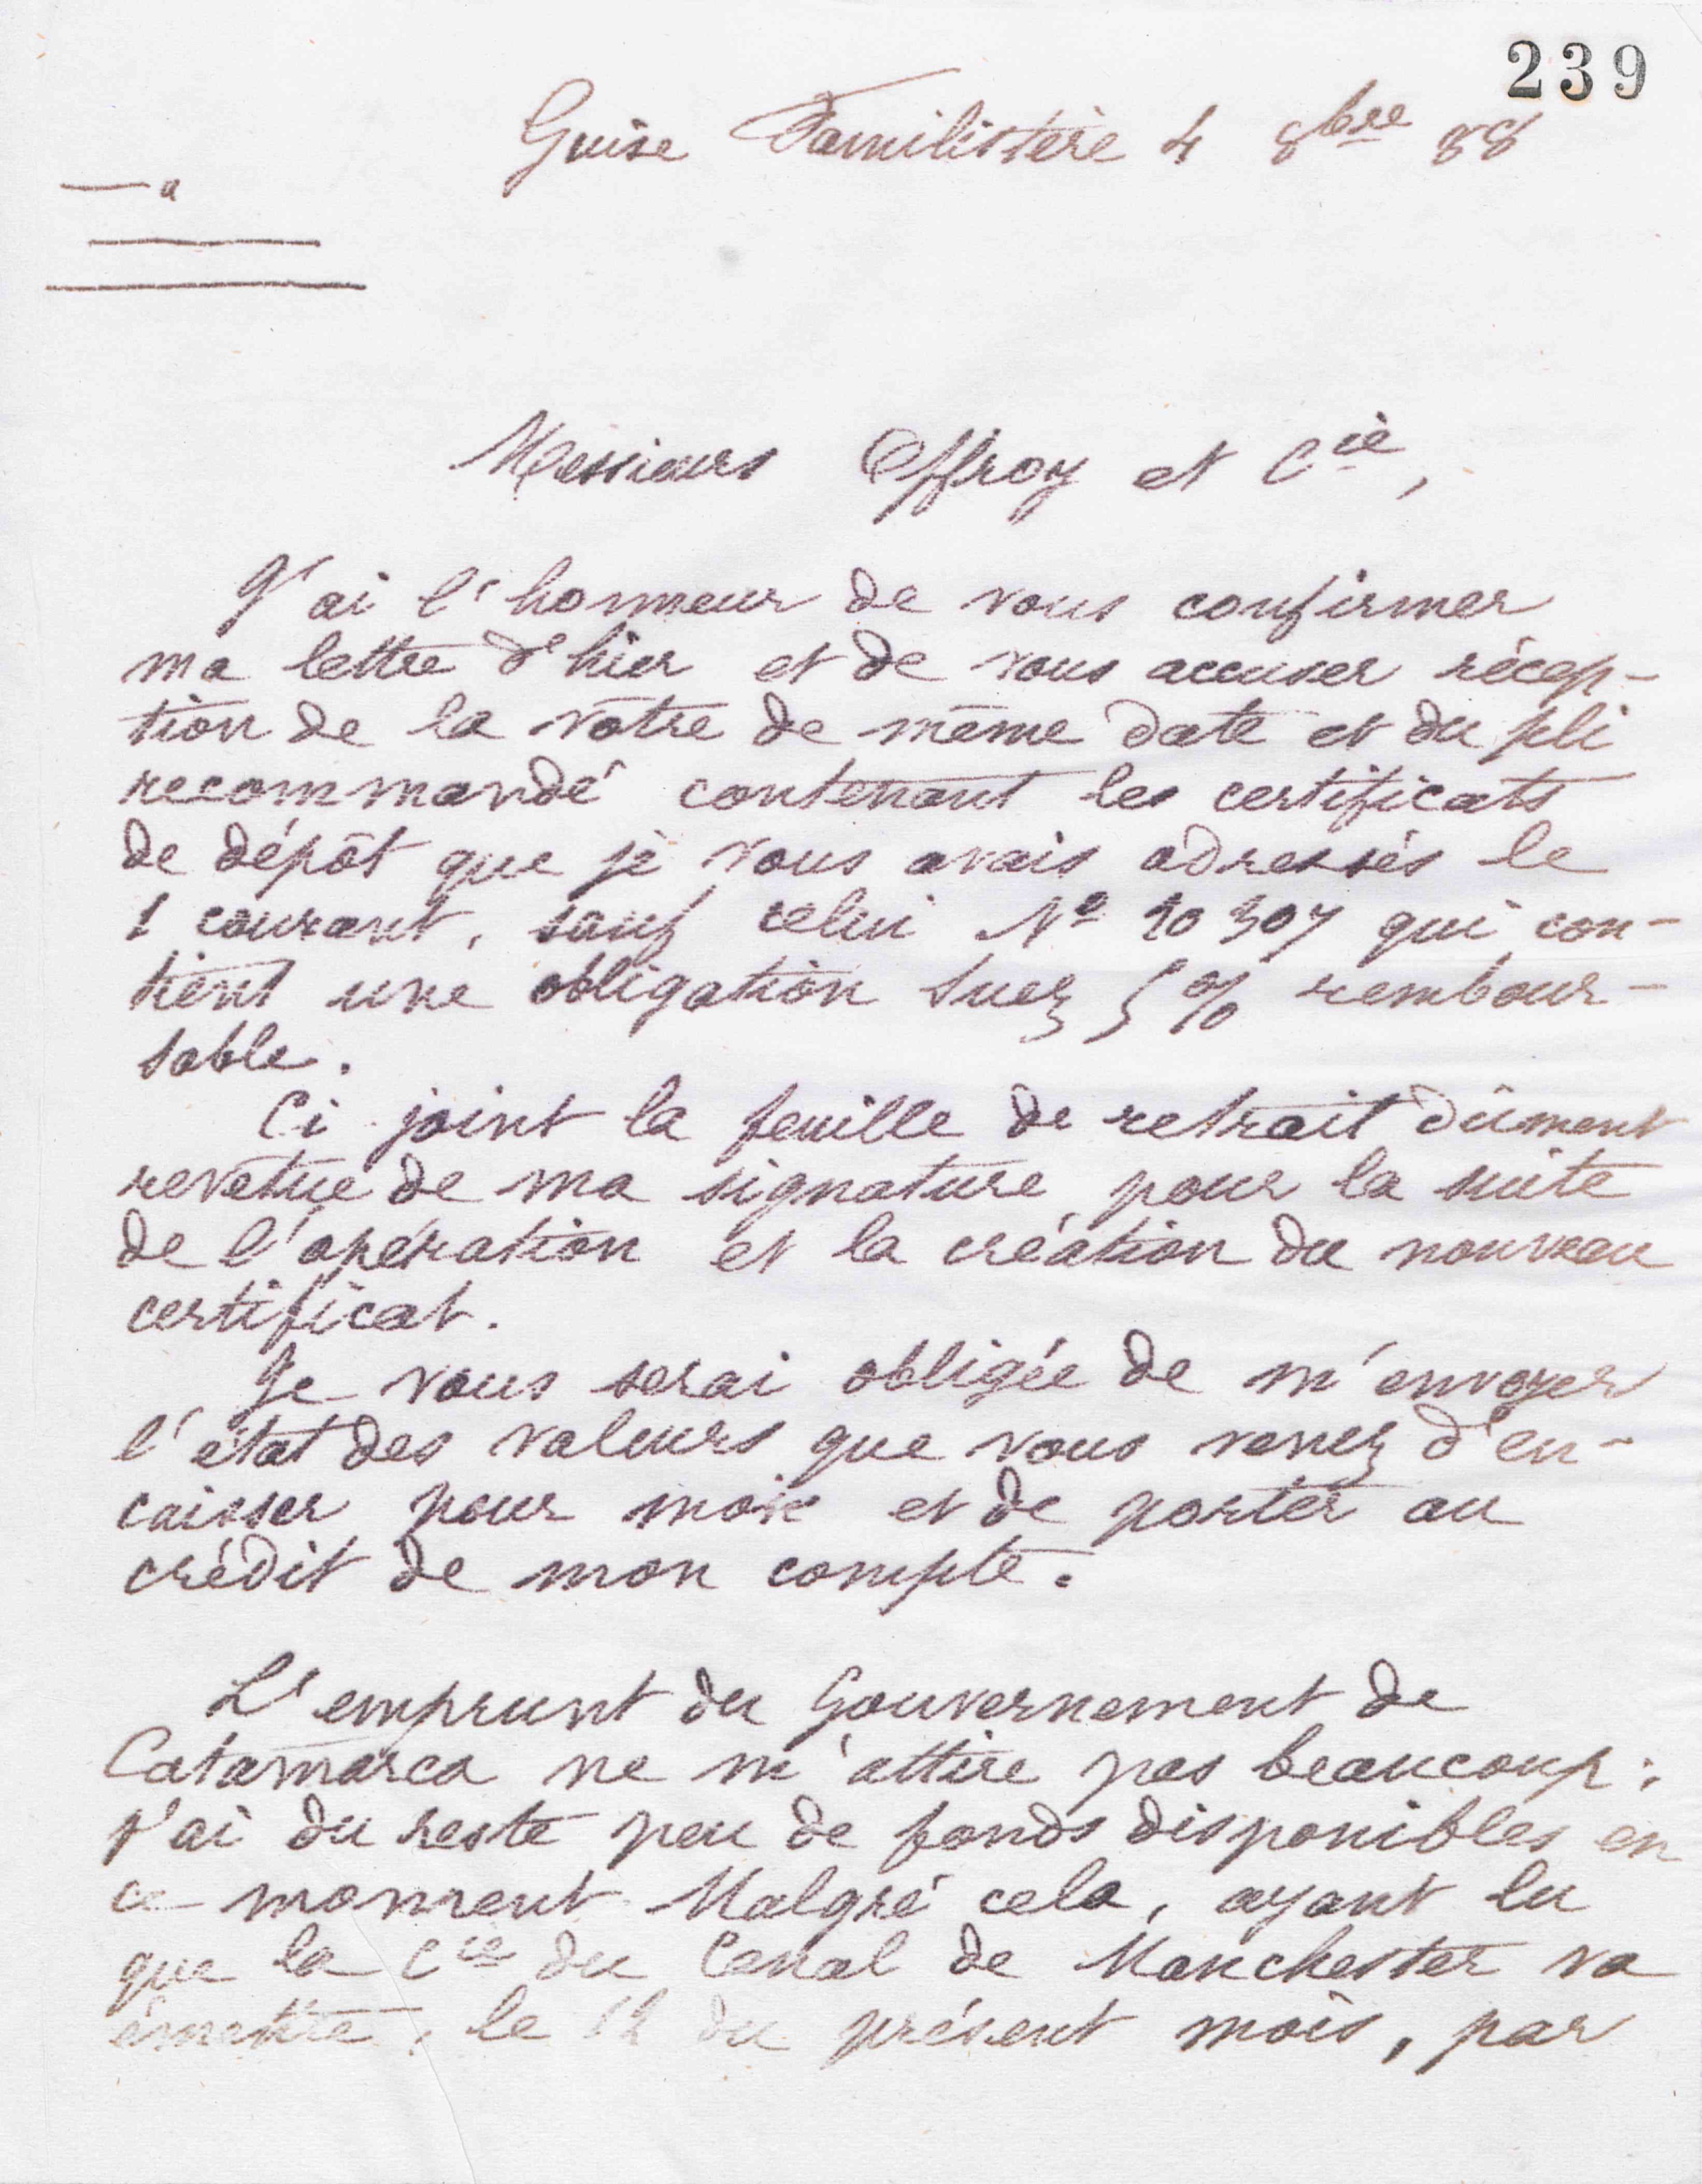 239
Guise Familistère 4 8bre 88
a
Messieurs Offroy et Cie,
J'ai l'honneur de vous confirmer
ma lettre d'hier et de vous accuser récep-
tion de la vôtre de même date et du pli
recommandé contenant les certificats
de dépôt que je vous avais adressés le
1 courant, sauf celui No 20 307 qui con-
tient une obligation Suez 5 % rembour-
sable.
Ci joint la feuille de retrait dûment
revêtue de ma signature pour la suite
de l'opération et la création du nouveau
certificat.
Je vous serai obligée de m'envoyer
l'état des valeurs que vous venez d'en-
caisser pour moi et de porter au
crédit de mon compte.
L'emprunt du Gouvernement de
Catamarca ne m'attire pas beaucoup;
j'ai du reste peu de fonds disponibles en
ce moment. Malgré cela, ayant lu
que la Cie du Canal de Manchester va
émettre, le du présent mois, par